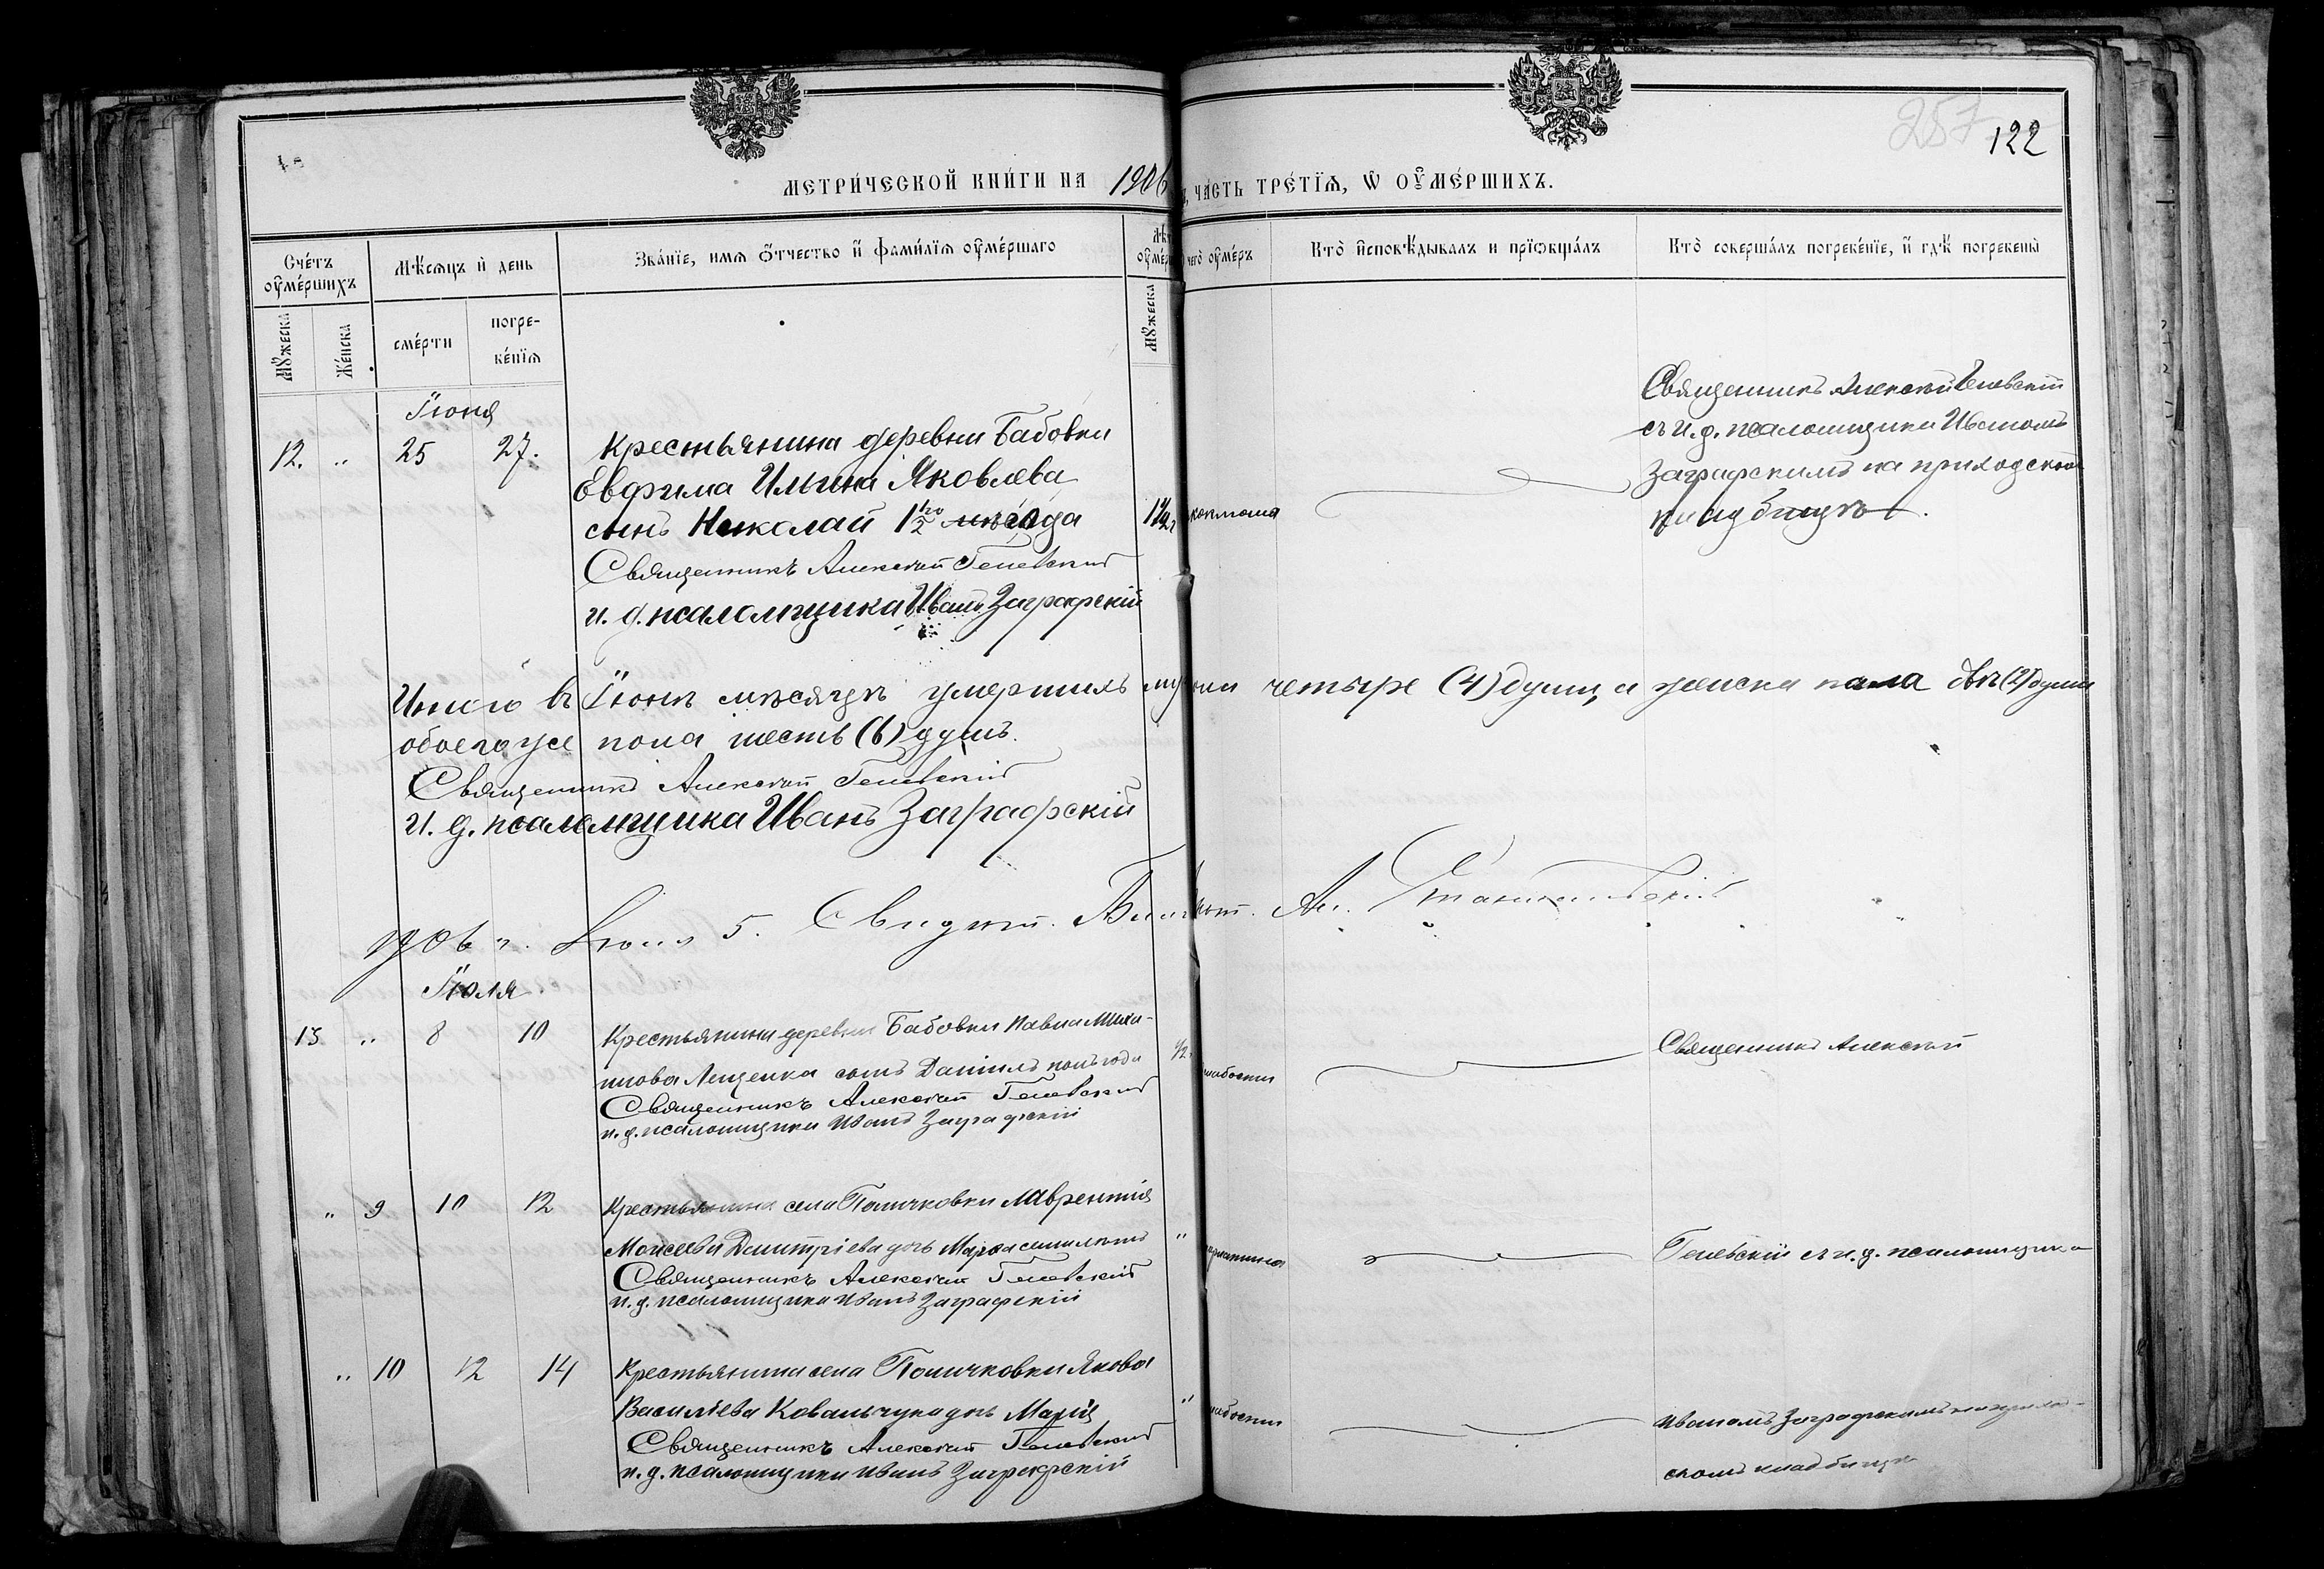 257 122
МЕТРИ́ЧЕСКОЙ КНИ́ГИ НА 1906 ЧА́СТЬ ТРЕ́ТІѦ, Ѡ ОУ҆МЕ́РШИХЪ.
Сче́тъ оу҆ме́ршихъ
Мѣ́сѧцъ и҆ день
Зва́нїе, имѧ ѻ҆́тчество и҆ фами́лїѧ оу҆ме́ршаго
Лѣ
оу҆ме́р
чегѡ̀ оу҆ме́ръ
Кто̀ и҆сповѣ́дывалъ и прїѡбща́лъ
Кто̀ соверша́лъ погребе́нїе, и҆ гдѣ̀ погребены̀
Мꙋ́жеска
Же́нска
сме́рти
погре-
бе́нїѧ
Мꙋ́жеска
Іюня
12. „ 25 27.
Крестьянина деревни Бабовки
Евфима Ильина Яковлева
сынъ Николай 1½ года
Священникъ Алексей Гелевский
и. д. псаломщика Иванъ Заграфскій
1½
Священникъ Алексѣй Гелевскій
съ и. д. псаломщика Иваномъ
Заграфскимъ на приходском
кладбищѣ.
Итого въ Іюнѣ мѣсяцѣ умершихъ муж четыре (4) души, а женска пола двѣ (2) души
обоего же пола шесть (6) душъ.
Священникъ Алексей Гелевскій
И. д. псаломщика Иванъ Заграфскій
1906 г. Іюля 5. Свидѣт. Благ Ал.
Іюля
13 „ 8 10
Крестьянина деревни Бабовки Павла Михаи-
лова Лещенка сынъ Даніилъ полъ года
Священникъ Алексей Гелевский
и. д. псаломщика Иванъ Заграфскій
½
слабости
Священникъ Алексѣй
„ 9 10 12
Крестьянина села Поличковки Лаврентія
Моисеева Димитріева дочь Марѳа
Священникъ Алексей Гелевскій
и. д. псаломщика Иванъ Заграфскій
„
Гелевскій съ и. д. псаломщика
„ 10 12 14
Крестьянина села Поличковки Якова
Василіева Ковальчука дочь Марія
Священникъ Алексей Гелевский
и. д. псаломщика Иванъ Заграфскій
„
слабости
Иваномъ Заграфскимъ на приход-
скомъ кладбищѣ